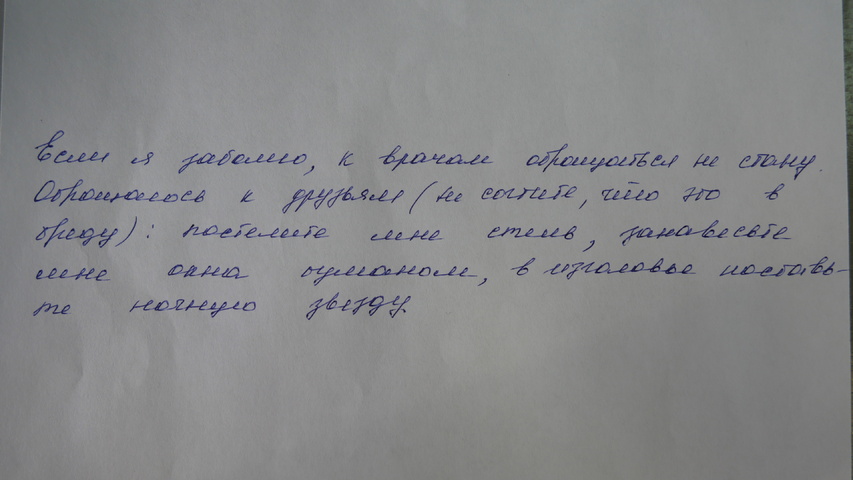 Если я заболею, к врачам обращаться не стану.
Обращаюсь к друзьям (не сочтите, что это в
бреду): постелите мне степь, занавесьте
мне окна туманом, в изголовье поставь-
те ночную звезду.